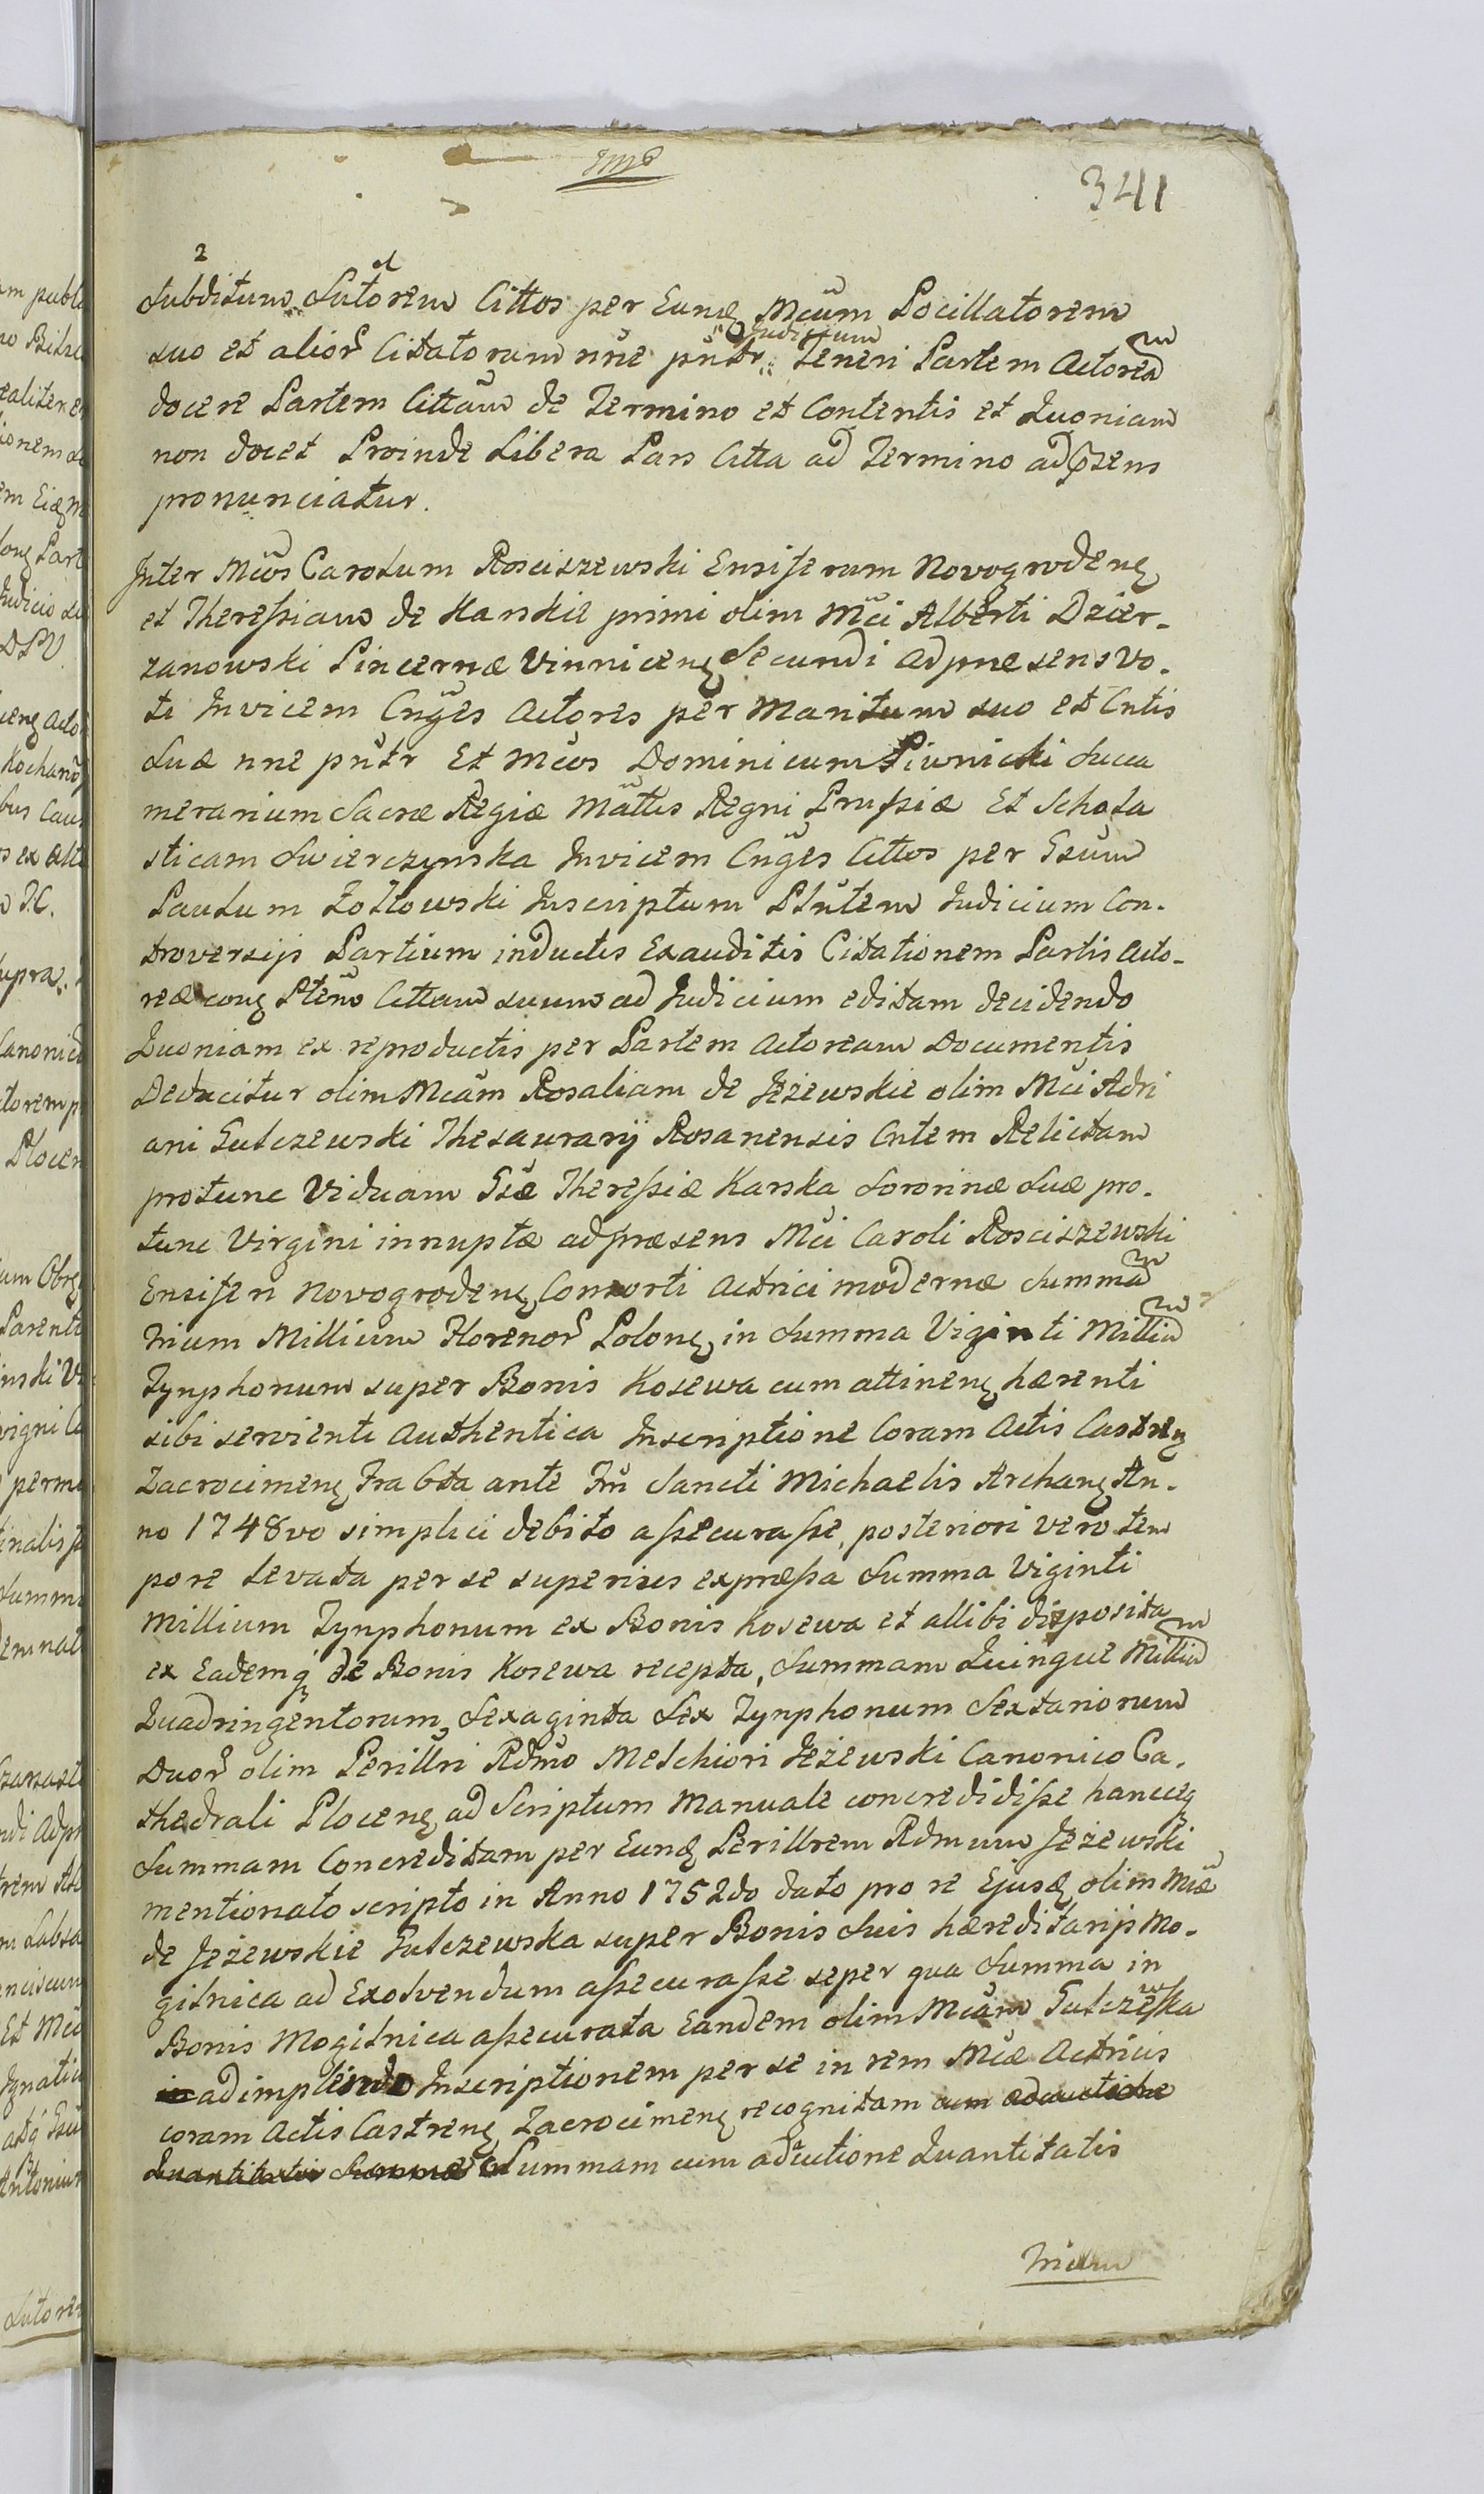 341
Subditum Sutorem Cittos per Eunq Mcum Pocillatorem
suo et alior Citatorum nne pntr Judicium Teneri Partem Actoream
docere Partem Cittam de Termino et Contentis et Quoniam
non docet Proinde Libera Pars Citta ad Termino adpsens
pronunciatur.
Inter Mcos Carolum Rosciszewski Ensiferum Novogrodenq
et Theressiam de Karskie primi olim Mci Alberti Dzier-
zanowski Pincernæ Vinnicenq Secundi Adpræsens vo-
ti Invicem Cnges Actores per Maritum suo et Cntis
Suæ nne pntr Et Mcos Dominicum Piwnicki Succa
merarium Sacræ Regiæ Mattis Regni Prussiæ Et Schola
sticam Swierczynska Invicem Cnges Cittos per Gsum
Paulum Zoltowski Inscriptum Plntem Judicium Con-
troversijs Partium inductis Exauditis Citationem Partis Acto-
reæ conq Ptem Cittam suum ad Judicium editam decidendo
Quoniam ex reproductis per Partem Actoream Documentis
Deducitur olim Mcam Rosaliam de Jeżewskie olim Mci Adri
ani Gulczewski Thesaurarij Rosanensis Cntem Relictam
protunc Viduam Gsæ Theressiæ Karska Sororinæ Suæ pro-
tunc Virgini innuptæ adpræsens Mci Caroli Rosciszewski
Ensiferi Novogrodenq Consorti Actrici modernæ Summam
Trium Millium Florenor Polonq in Summa Viginti Millia
Tynphonum super Bonis Kosewa cum attinenq hærenti
sibi servienti Authentica Inscriptione Coram Actis Castrenq
Zacrocimenq Fra 6ta ante Fm Sancti Michaelis Archanq An-
no 1748vo simplici debito assecurasse, posteriori vero tem
pore levata per se superius expræssa Summa Viginti
Millium Tynphonum ex Bonis Kosewa et allibi disposita
ex Eademq de Bonis Kosewa recepta, Summam Quinque Millium
Quadringentorum Sexaginta Sex Tynphonum Sextariorum
Duor olim Perillri Rdmo Melchiori Jeżewski Canonico Ca-
thedrali Plocenq ad Scriptum Manuale concredidisse hancceq
Summam Concreditam per Eunq Perillrem Rdmum Jeżewski
mentionato scripto in Anno 1752do dato pro re Ejusq olim Mcæ
de Jeżewskie Gulczewska super Bonis Suis hæreditarijs Mo-
gilnica ad Exolvendum assecurasse seper qua Summa in
Bonis Mogilnica assecurata Eandem olim Mcam Gulczewska
adimplendo Inscriptionem per se in rem Mcæ Actricis
coram Actis Castrenq Zacrocimenq recognitam cum adauctione
Quantitatis Summæ Summam cum adauctione Quantitatis
Trium